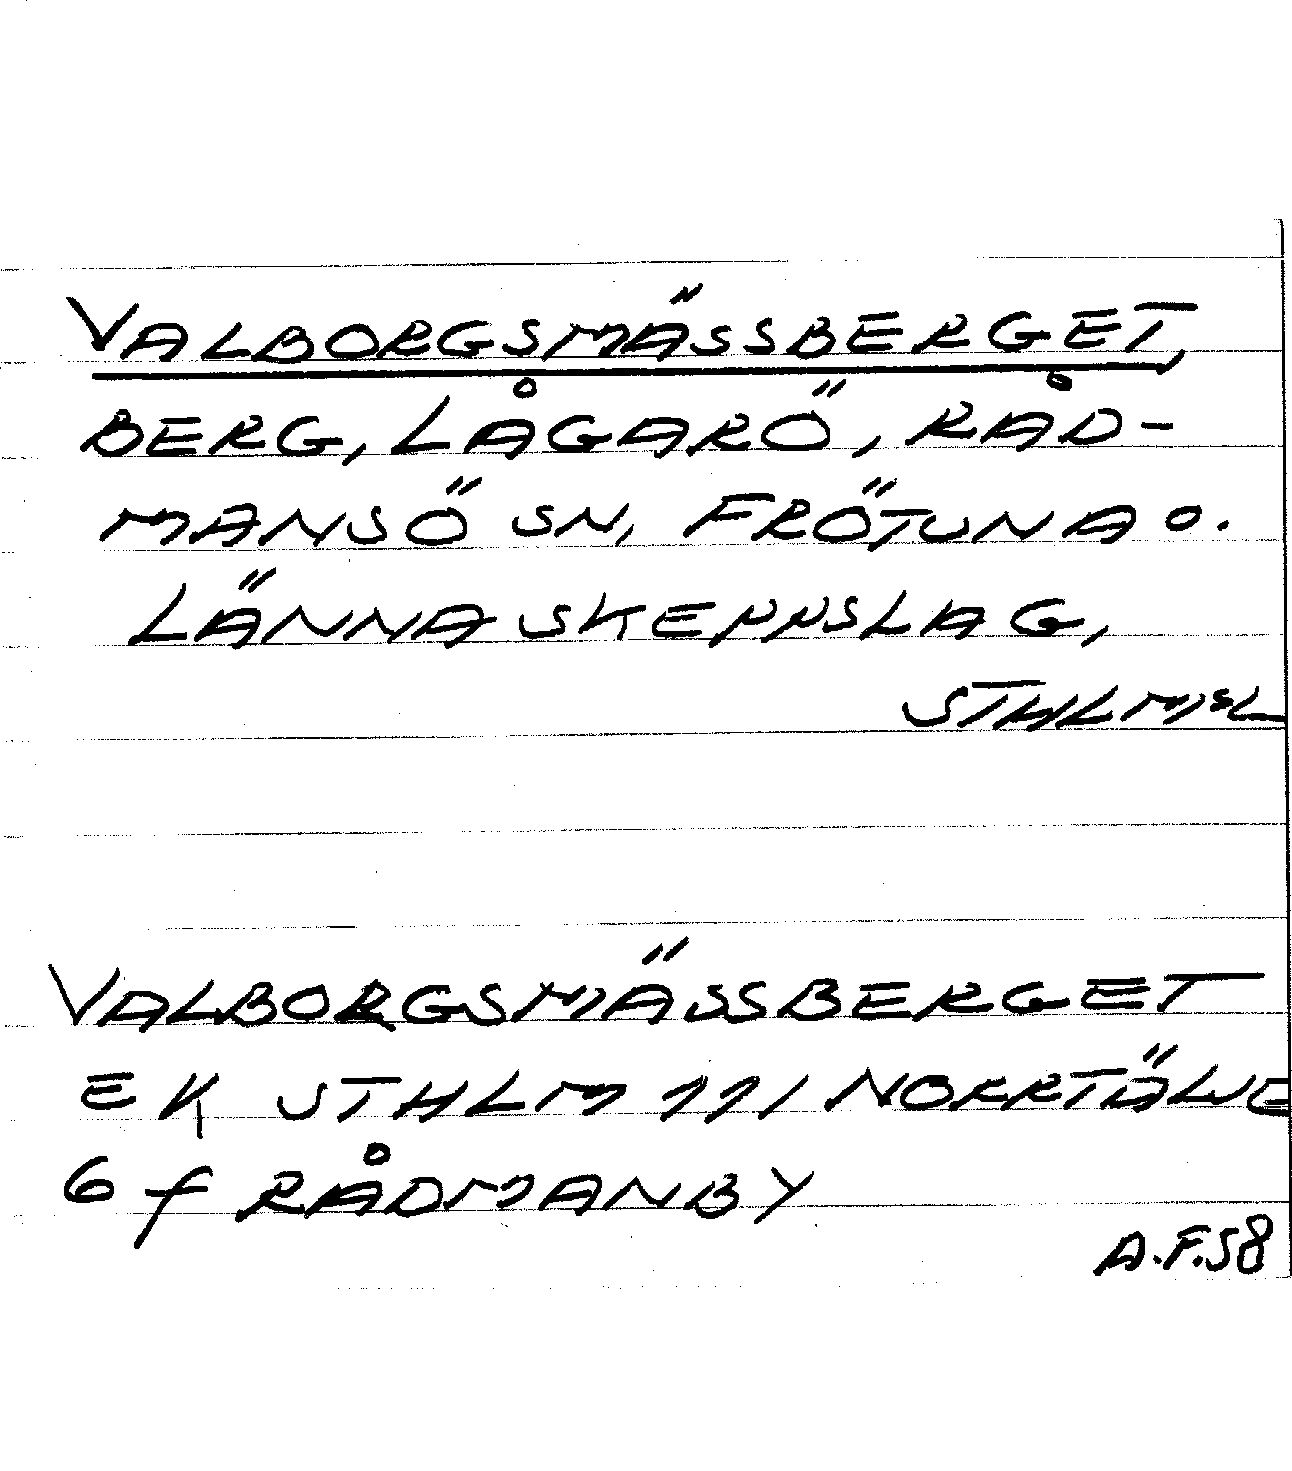 VALBORGSMÄSSBERGET,
BERG, LÅGARÖ, RÅD-
MANSÖ SN, FRÖTUNA O.
LÄNNA SKEPPSLAG,
STHLMS L
VALBORGSMÄSSBERGET
EK STHLM 111 NORRTÄLJE
6 f RÅDMANBY
A.F. 58